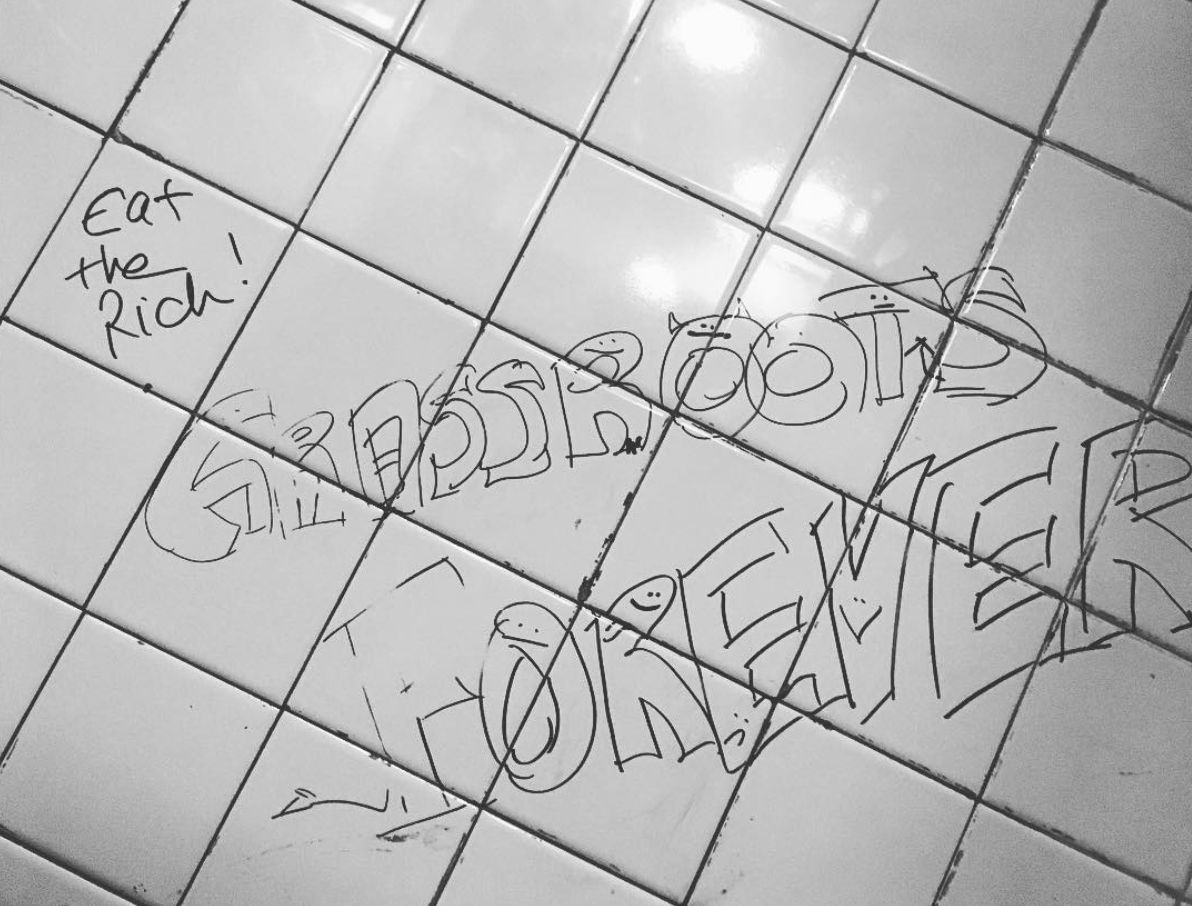 Eat
the
Rich!
GRASSROOTS
FOREVER